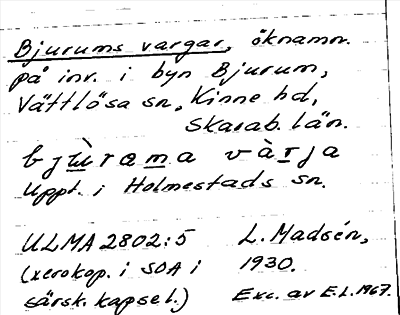 Bjurums vargar, öknamn.
på inv. i byn Bjurum,
Vättlösa sn, Kinne hd,
Skarab. län.
bjùrama vàrja
Uppt. i Holmestads sn.
ULMA 2802:5 L. Madsén,
(xerokop. i SOA i 1930.
särsk. kapsel.) Exc. av E.L. 1967.